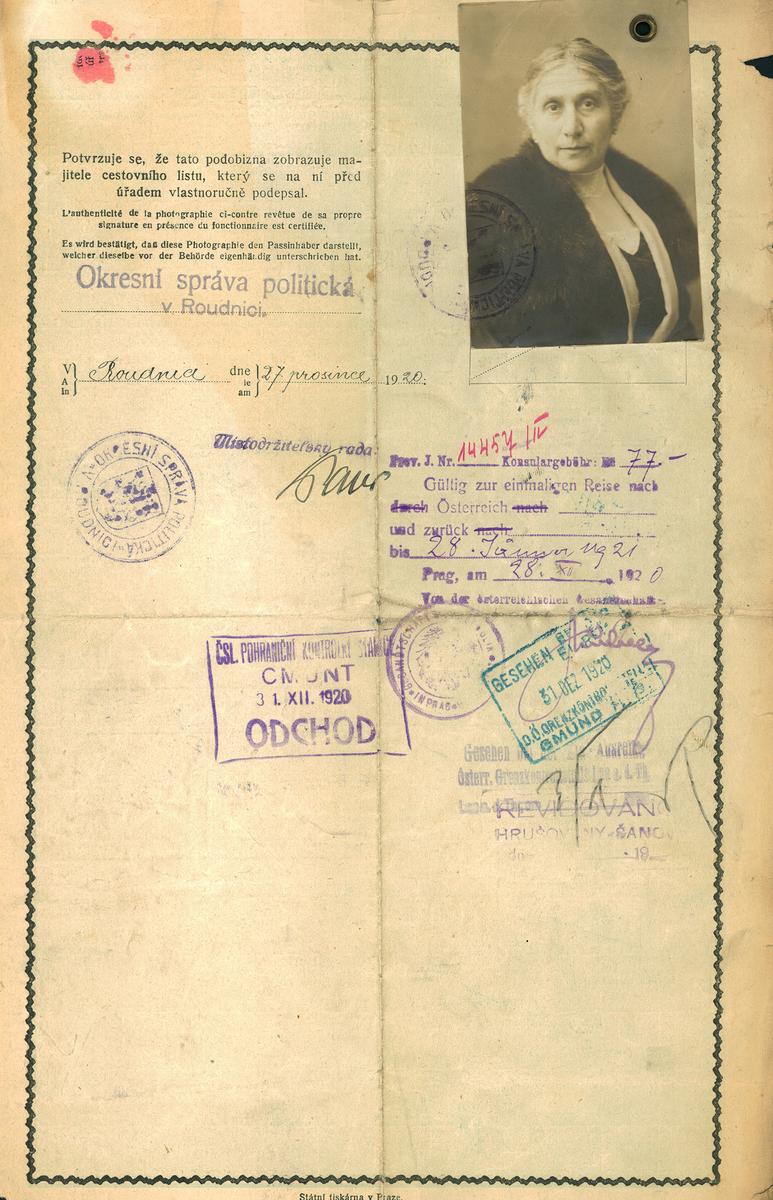 Potvrzuje se, že tato podobizna zobrazuje ma-
jitele cestovního listu, který se na ní před
úřadem vlastnoručně podepsal.
L'authenticité de la photographie ci-contre revêtue de sa propre
signature en présence du fonctionnaire est certifiée.
Es wird bestätigt, daß diese Photographie den Passinhaber darstellt,
welcher dieselbe vor der Behörde eigenhändig unterschrieben hat.
Okresní správa politická
v Roudnici.
V Roudnici dne 27 prosince 1920.
A le
in am
OKRESNÍ SPRÁVA POLITICKÁ V ROUDNICI
Místodržitelský rada:
Prov. J. Nr. 14457/IV Konsulargebühr: Kč 77-
Gültig zur einmaligen Reise nach
durch Österreich nach
und zurück nach
bis 28. Jänner 1921
Prag, am 28. XII 1920
Von der österreichischen Gesandtschaft
IN PRAG
ČSL. POHRANIČNÍ KONTROLNÍ STANICE
CMUNT
31. XII. 1920
ODCHOD
GESEHEN BEI DER
31 DEZ 1920
D.Ö. GRENZKONTROLLSTELLE
GMÜND
Gesehen Ausreise
Österr. Grenzkon a. d. Th.
REVIDOVÁNO
HRUŠOVANY-ŠANOV
dne 19
Státní tiskárna v Praze.